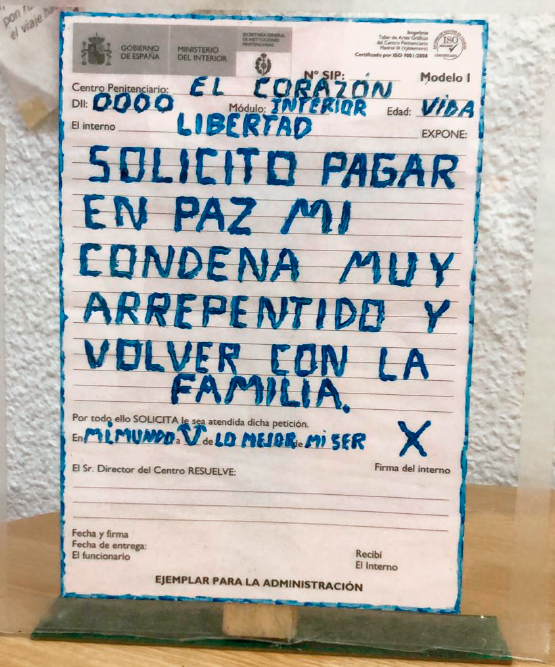 el viaje
GOBIERNO DE ESPAÑA
MINISTERIO DEL INTERIOR
SECRETARÍA GENERAL DE INSTITUCIONES PENITENCIARIAS
Imprime
Taller de Artes Gráficas
del Centro Penitenciario
Madrid III (Valdemoro)
Certificado por ISO 9001/2008
ISO
Nº SIP:
Modelo 1
Centro Penitenciario: EL CORAZÓN
DII: 0000 Módulo: INTERIOR Edad: VIDA
El interno LIBERTAD EXPONE:
SOLICITO PAGAR
EN PAZ MI
CONDENA MUY
ARREPENTIDO Y
VOLVER CON LA
FAMILIA.
Por todo ello SOLICITA le sea atendida dicha petición.
En MI MUNDO a V de LO MEJOR de MI SER X
Firma del interno
El Sr. Director del Centro RESUELVE:
Fecha y firma
Fecha de entrega:
El funcionario
Recibí
El Interno
EJEMPLAR PARA LA ADMINISTRACIÓN